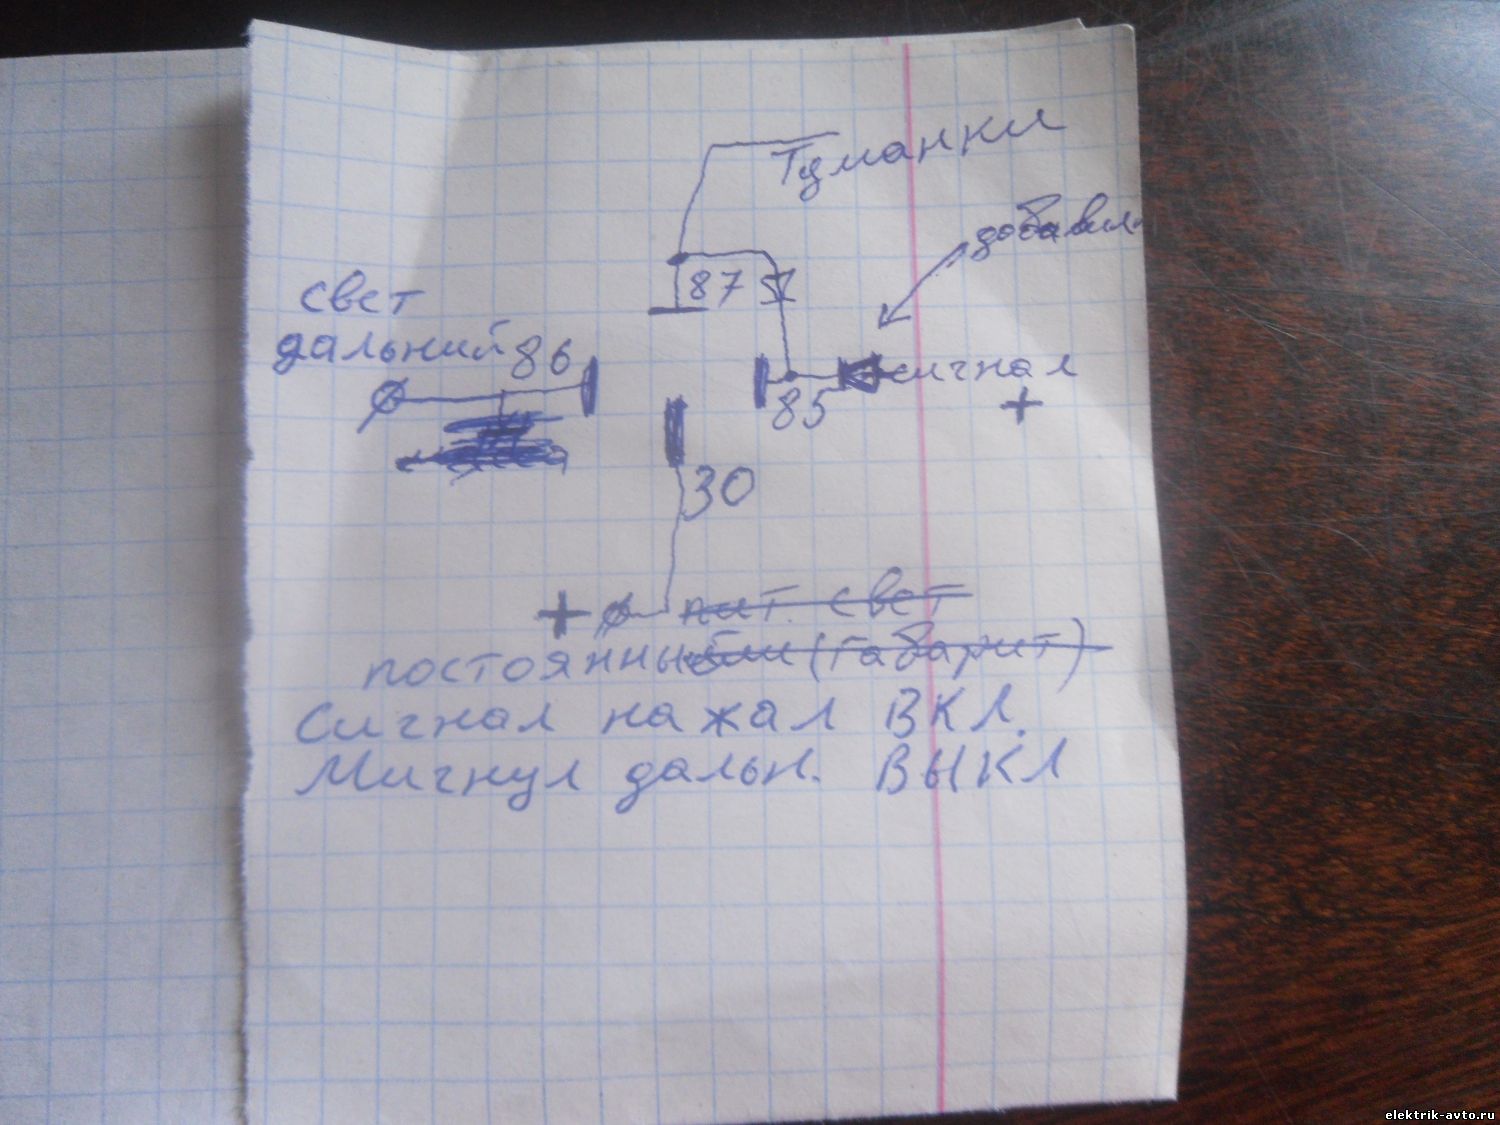 Туманки
добавил
свет
дальний 86
87
сигнал
+
85
30
+ пит. свет
постоянный (габарит)
Сигнал нажал ВКЛ.
Мигнул дальн. ВЫКЛ
elektrik-avto.ru